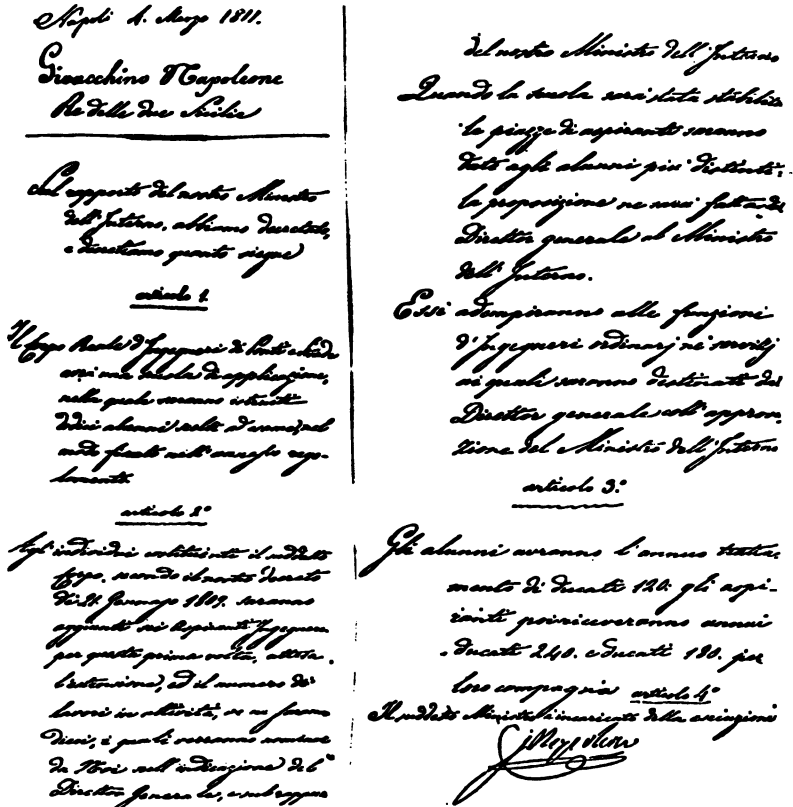 Napoli 4. Marzo 1811.
Gioacchino Napoleone
Re delle due Sicilie
Sul rapporto del nostro Ministro
dell'Interno, abbiamo decretato,
e decretiamo quanto siegue
articolo 1.
Il Corpo Reale d'Ingegneri di Ponti e Strade
avrà una scuola di applicazione,
nella quale saranno istruiti
dodici alunni scelti ad esame, nel
modo fissato nell'annesso rego-
lamento
articolo 2º
Agl'individui costituenti il suddetto
Corpo, secondo il nostro decreto
di 21. Gennajo 1809. saranno
aggiunti sei Aspiranti Ingegneri
per questa prima volta, attesa
l'estensione, ed il numero de'
lavori in attività, se ne
dieci, i quali verranno nominati
da Noi sull'indicazione del
Direttor Generale, e sul rapporto
del nostro Ministro dell'Interno
Quando la scuola sarà stata stabilita
le piazze di aspiranti saranno
date agli alunni più distinti:
la proposizione ne sarà fatta dal
Direttor generale al Ministro
dell'Interno.
Essi adempiranno alle funzioni
d'Ingegneri ordinarj ne' servizj
ai quali saranno destinati dal
Direttor generale coll'approva-
zione del Ministro dell'Interno
articolo 3.º
Gli alunni avranno l'annuo tratta-
mento di ducati 120. gli aspi-
ranti poi riceveranno annui
ducati 240. e ducati 180. per
loro compagnia articolo 4º
Il suddetto Ministro è incaricato della esecuzione